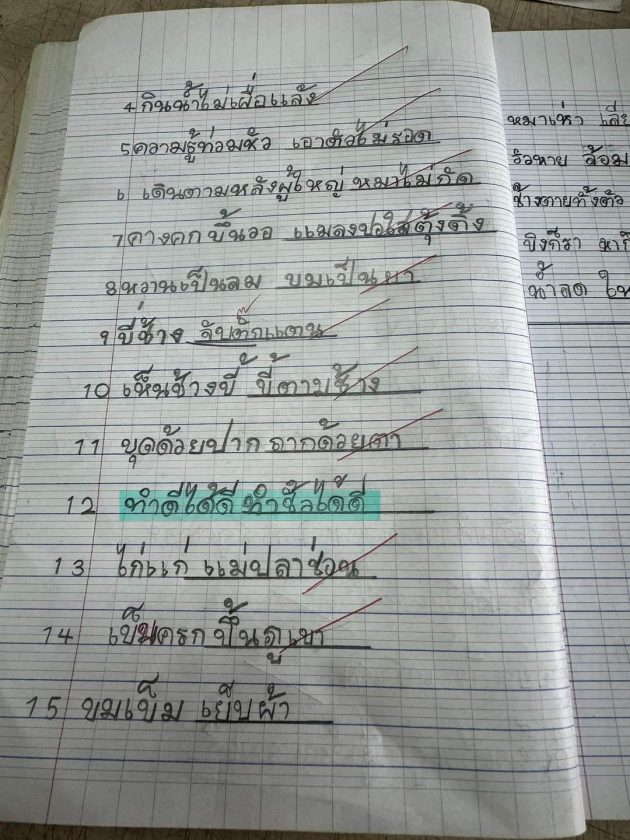 4 กินน้ำไม่เผื่อแล้ง
5 ความรู้ท่วมหัว เอาตัวไม่รอด
6 เดินตามหลังผู้ใหญ่ หมาไม่กัด
7 คางคกขึ้นวอ แมลงปอใส่ตุ้งติ้ง
8 หวานเป็นลม ขมเป็นยา
9 ขี่ช้าง จับตั๊กแตน
10 เห็นช้างขี้ ขี้ตามช้าง
11 ขุดด้วยปาก ถากด้วยตา
12 ทำดีได้ดี ทำชั่วได้ดี
13 ไก่แก่ แม่ปลาช่อน
14 เข็นครก ขึ้นภูเขา
15 ขมเข็ม เย็บผ้า
หมาเห่า
วัวหาย ล้อม
ช้างตายทั้งตัว
ขิงก็รา
น้ำลด